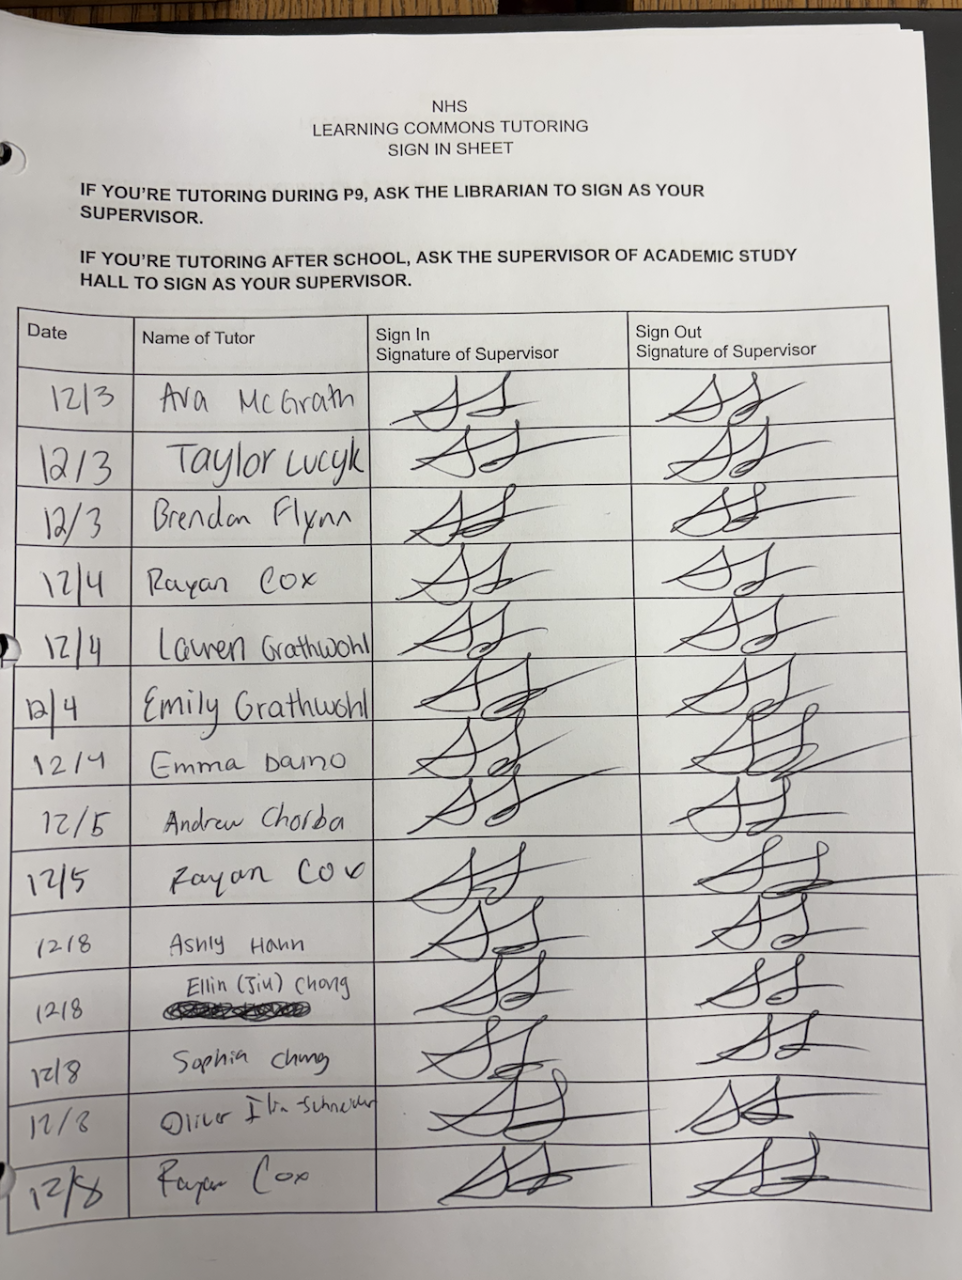 NHS
LEARNING COMMONS TUTORING
SIGN IN SHEET
IF YOU'RE TUTORING DURING P9, ASK THE LIBRARIAN TO SIGN AS YOUR
SUPERVISOR.
IF YOU'RE TUTORING AFTER SCHOOL, ASK THE SUPERVISOR OF ACADEMIC STUDY
HALL TO SIGN AS YOUR SUPERVISOR.
Date Name of Tutor Sign In Sign Out
Signature of Supervisor Signature of Supervisor
12/3 Ava McGrath
12/3 Taylor Lucyk
12/3 Brendan Flynn
12/4 Rayan Cox
12/4 Lauren Grathwohl
12/4 Emily Grathwohl
12/4 Emma Daino
12/5 Andrew Chorba
12/5 Rayan Cox
12/8 Ashly Hahn
Ellin (Jiu) Chong
12/8
12/8 Sophia Chung
12/8 Oliver Schneider
12/8 Rayan Cox